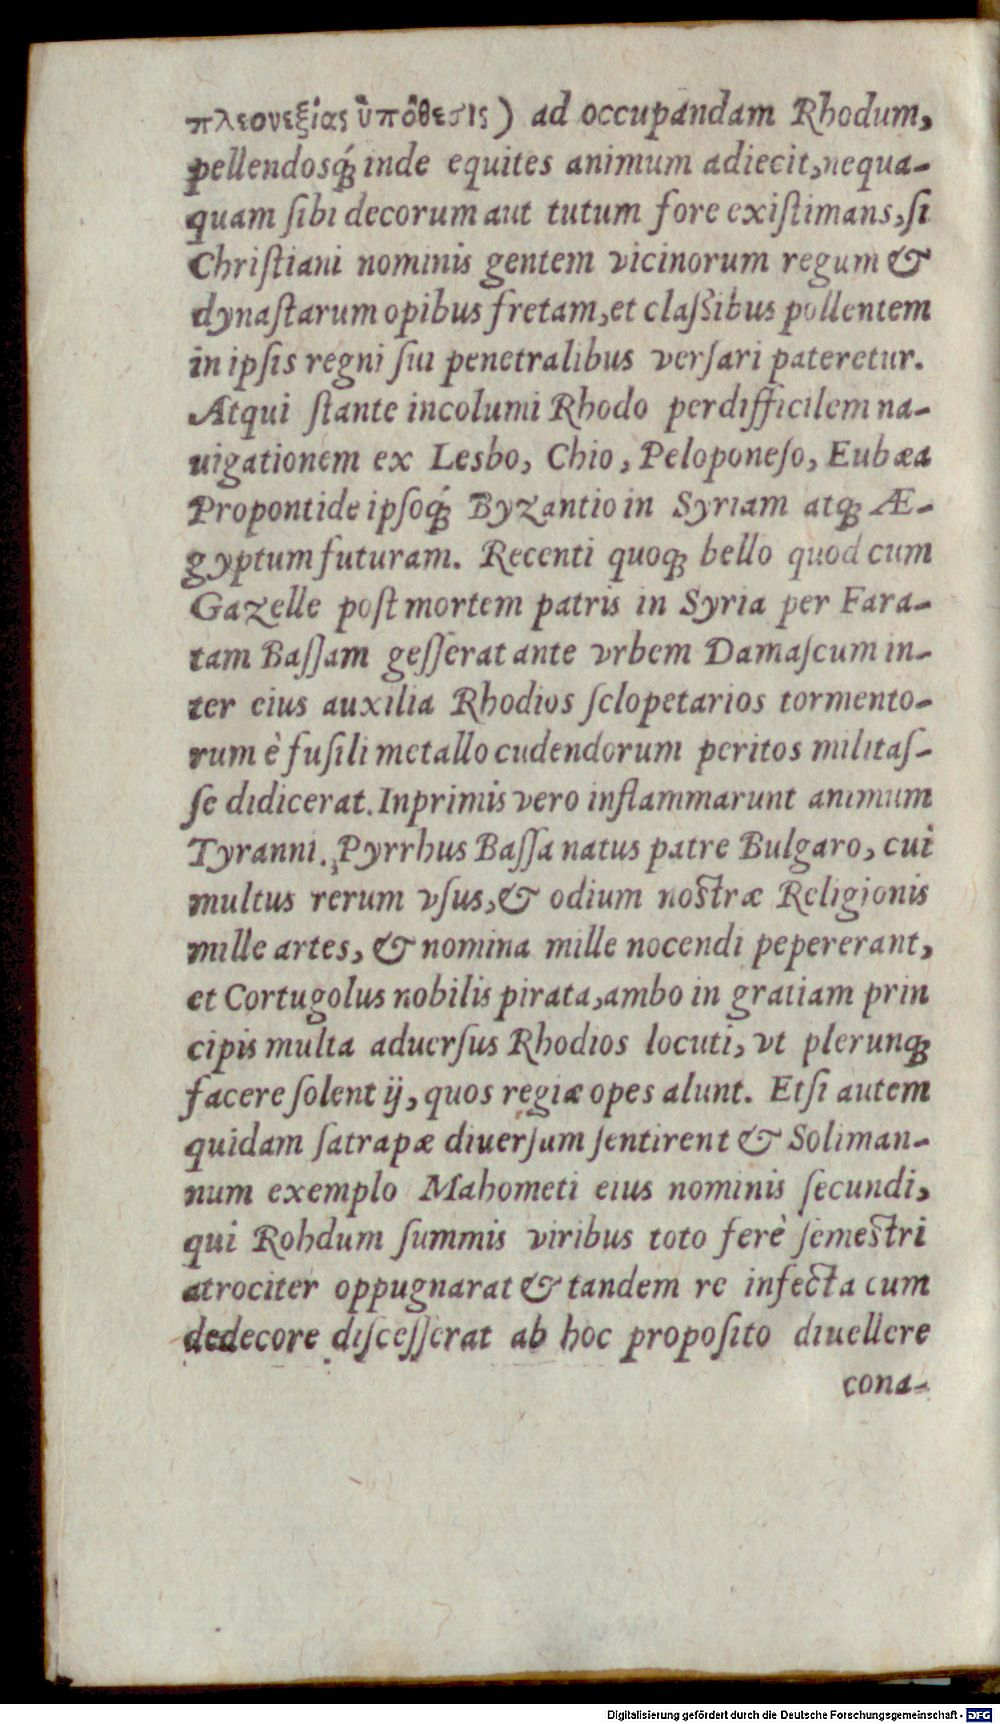 πλεονεξίας ὑπόθεσις) ad occupandam Rhodum,
pellendosq́; inde equites animum adiecit, nequa-
quam ſibi decorum aut tutum fore exiſtimans, ſi
Chriſtiani nominis gentem vicinorum regum &
dynaſtarum opibus fretam, et claſsibus pollentem
in ipſis regni ſui penetralibus verſari pateretur.
Atqui ſtante incolumi Rhodo perdifficilem na-
uigationem ex Lesbo, Chio, Peloponeſo, Eubæa
Propontide ipſoq́; Byzantio in Syriam atq; Æ-
gyptum futuram. Recenti quoq; bello quod cum
Gazelle poſt mortem patris in Syria per Fara-
tam Baſſam geſſerat ante vrbem Damaſcum in-
ter eius auxilia Rhodios ſclopetarios tormento-
rum è fuſili metallo cudendorum peritos militaſ-
ſe didicerat. Inprimis vero inflammarunt animum
Tyranni. Pyrrhus Baſſa natus patre Bulgaro, cui
multus rerum vſus, & odium noſtræ Religionis
mille artes, & nomina mille nocendi pepererant,
et Cortugolus nobilis pirata, ambo in gratiam prin
cipis multa aduerſus Rhodios locuti, vt plerunq;
facere ſolent ij, quos regiæ opes alunt. Etſi autem
quidam ſatrapæ diuerſum ſentirent & Soliman-
num exemplo Mahometi eius nominis ſecundi,
qui Rohdum ſummis viribus toto ferè ſemeſtri
atrociter oppugnarat & tandem re infecta cum
dedecore diſceſſerat ab hoc propoſito diuellere
cona-
Digitalisierung gefördert durch die Deutsche Forschungsgemeinschaft - DFG